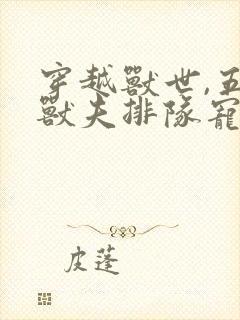 穿越獸世,五
獸夫排隊寵
皮蓬